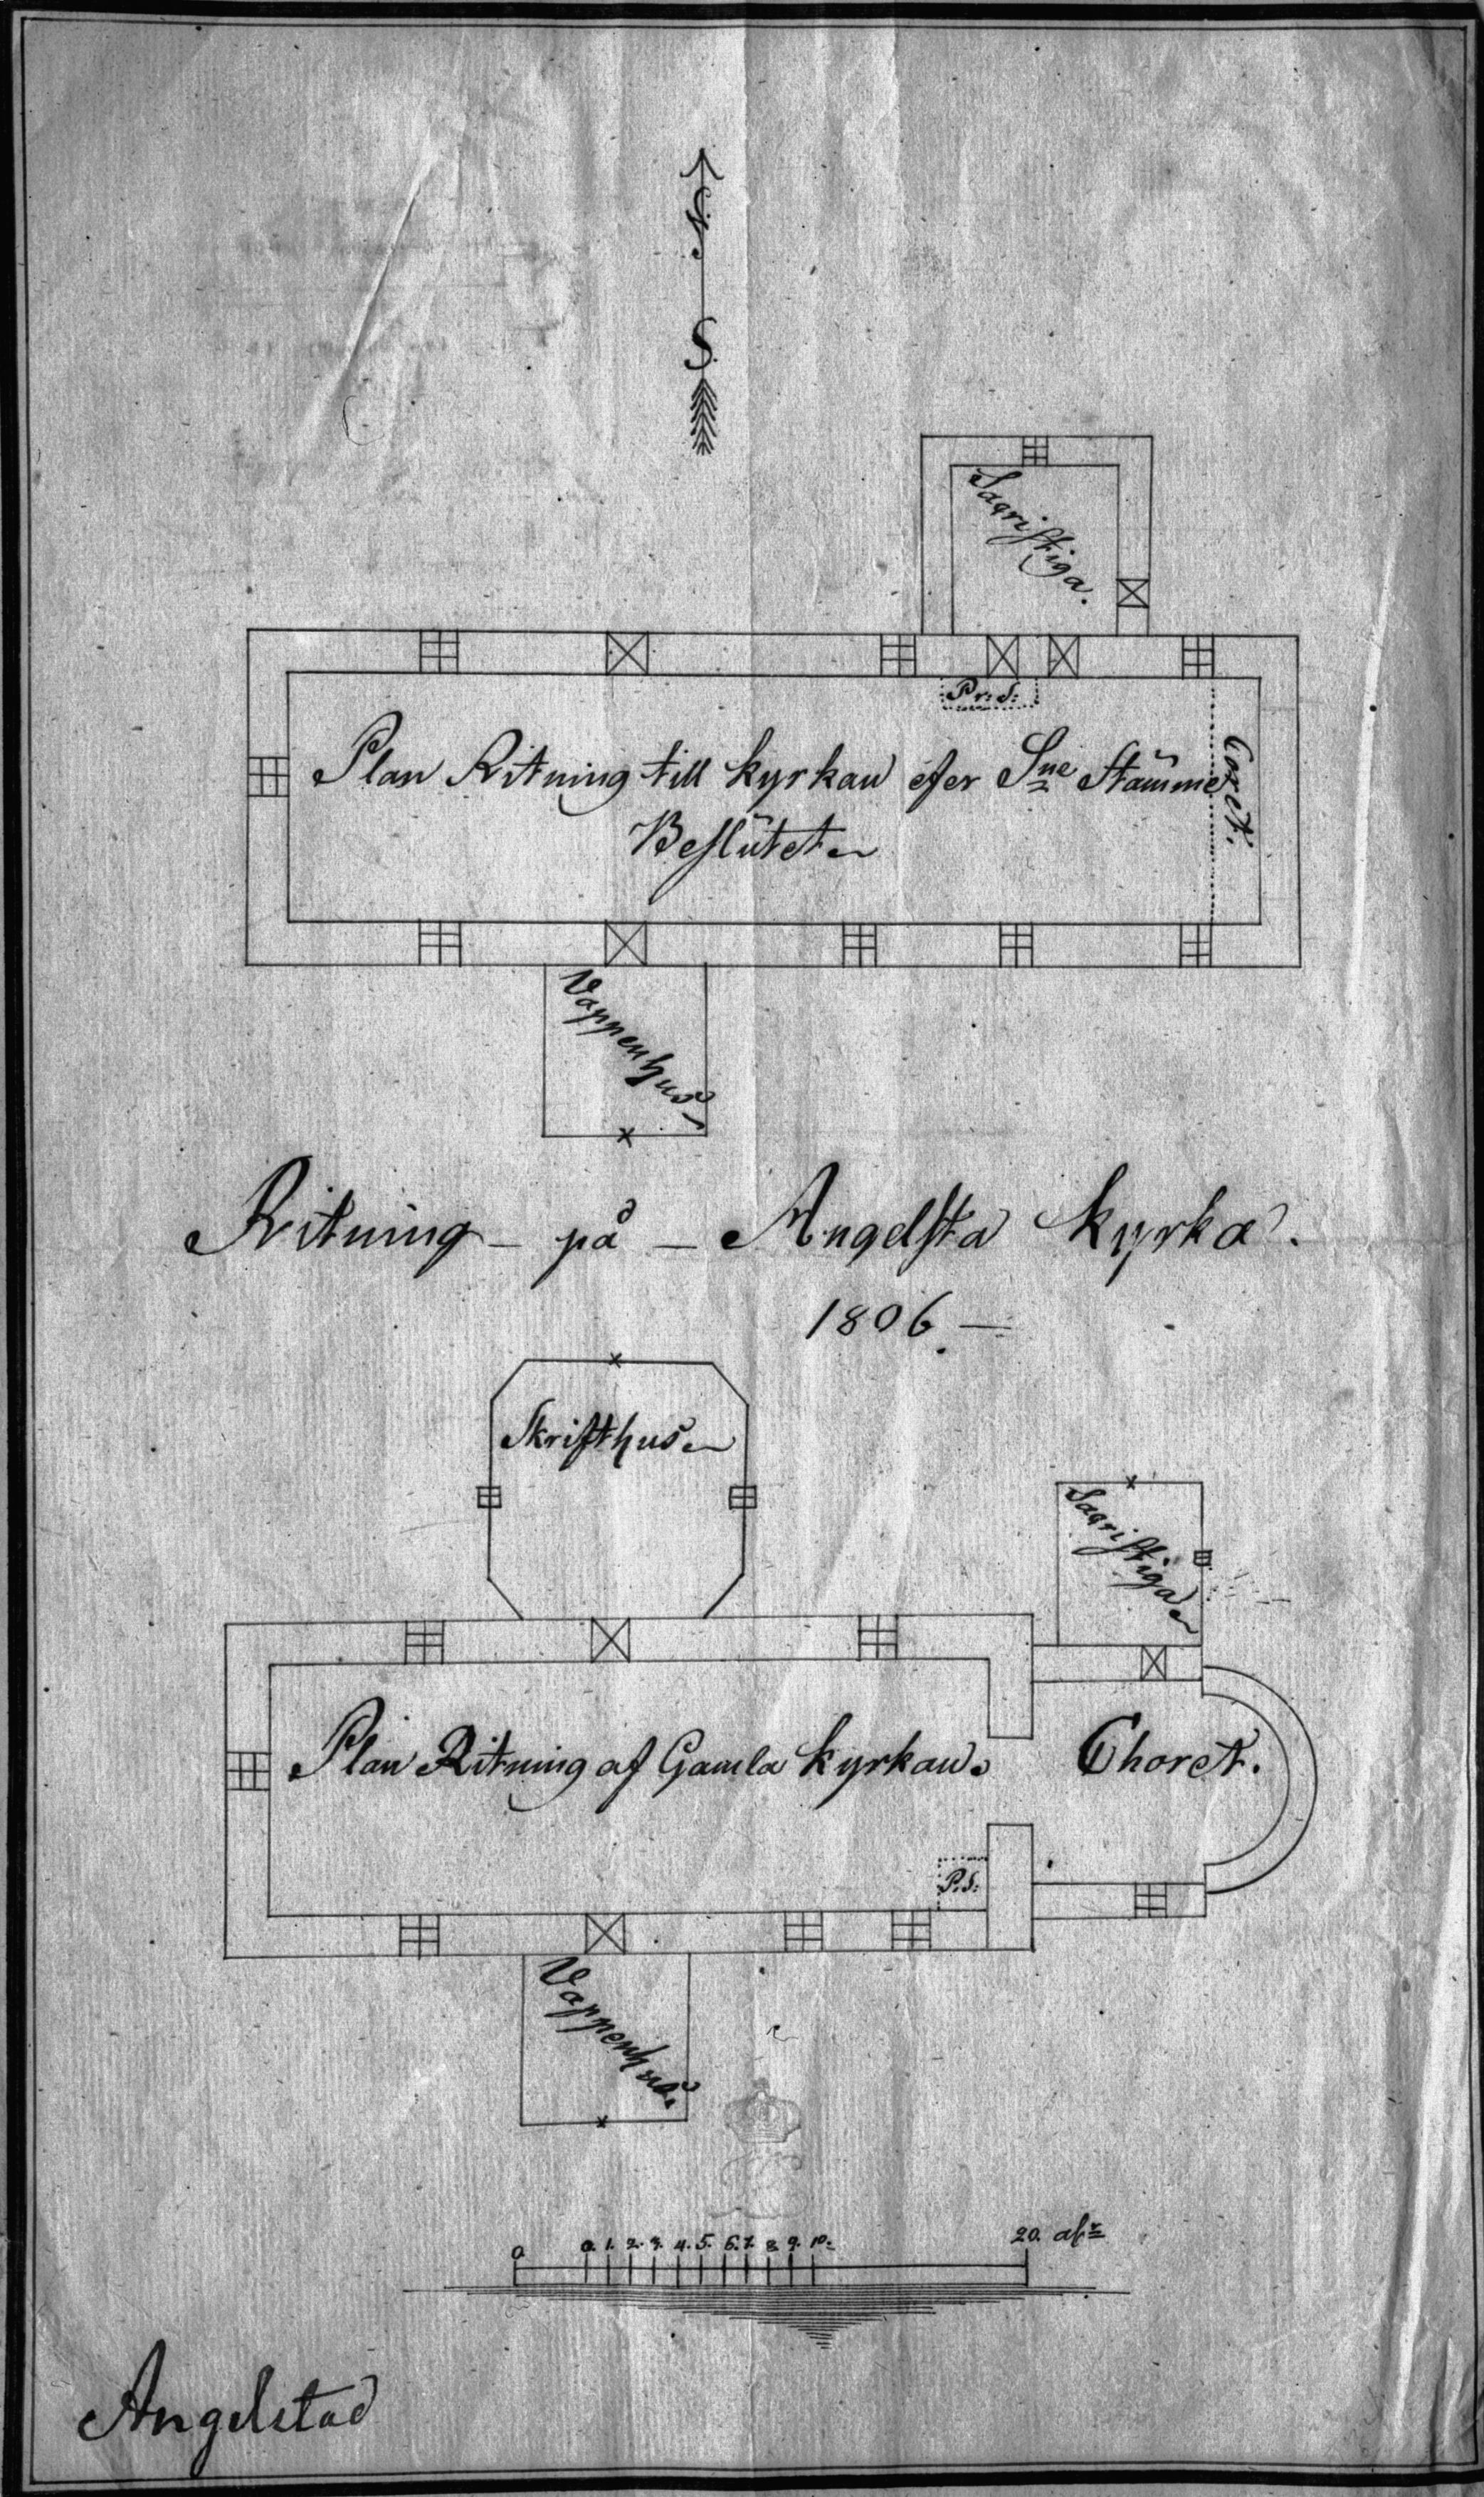 N
S.
Sacristiga.
Pr: S:
Plan Ritning till kyrkan efter Sne Stämme
Beslutet
Coret.
Vappenhus
Ritning på Angelsta kyrka.
1806
Skrifthus
Sacristiga
Plan Ritning af Gamla kyrkan.
Choret.
P. S:
Vappenhus.
0. 0. 1. 2. 3. 4. 5. 6. 7. 8. 9. 10. 20. alr
Angelstad